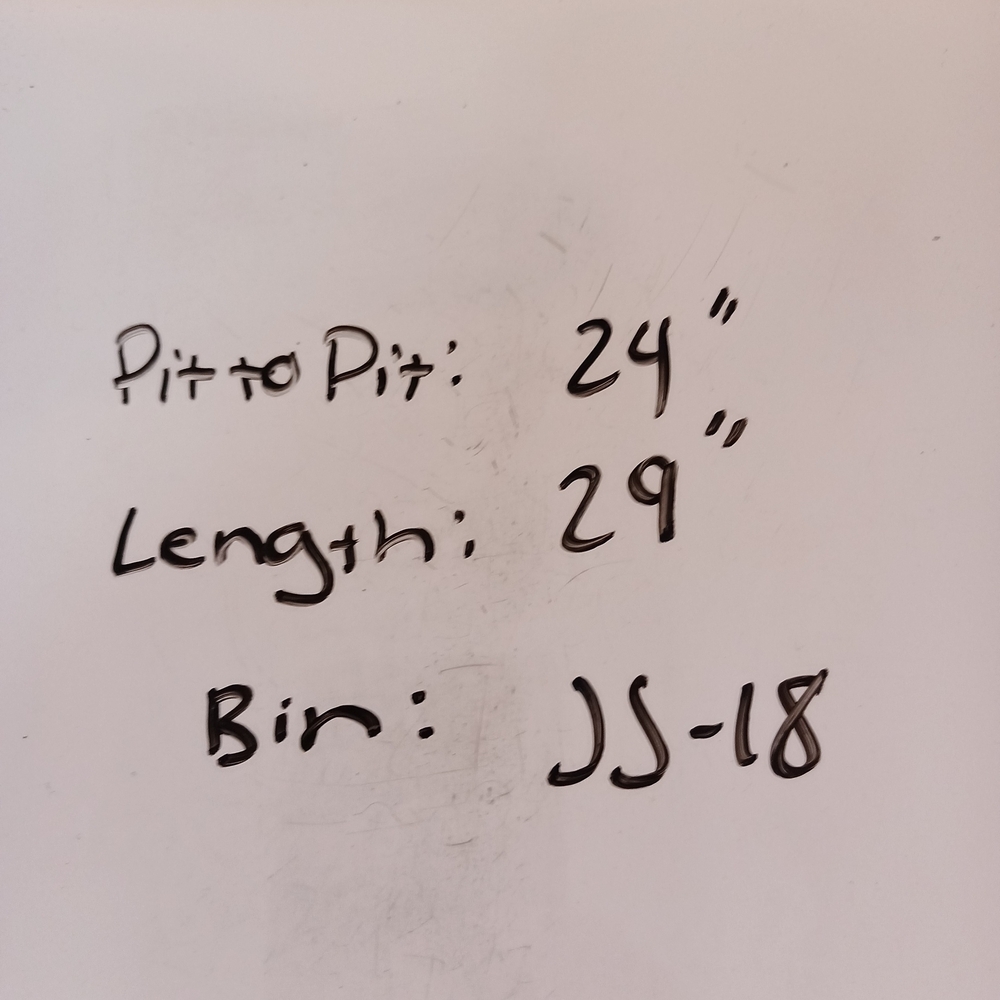 Pit to Pit: 24"
Length: 29"
Bin: JS-18